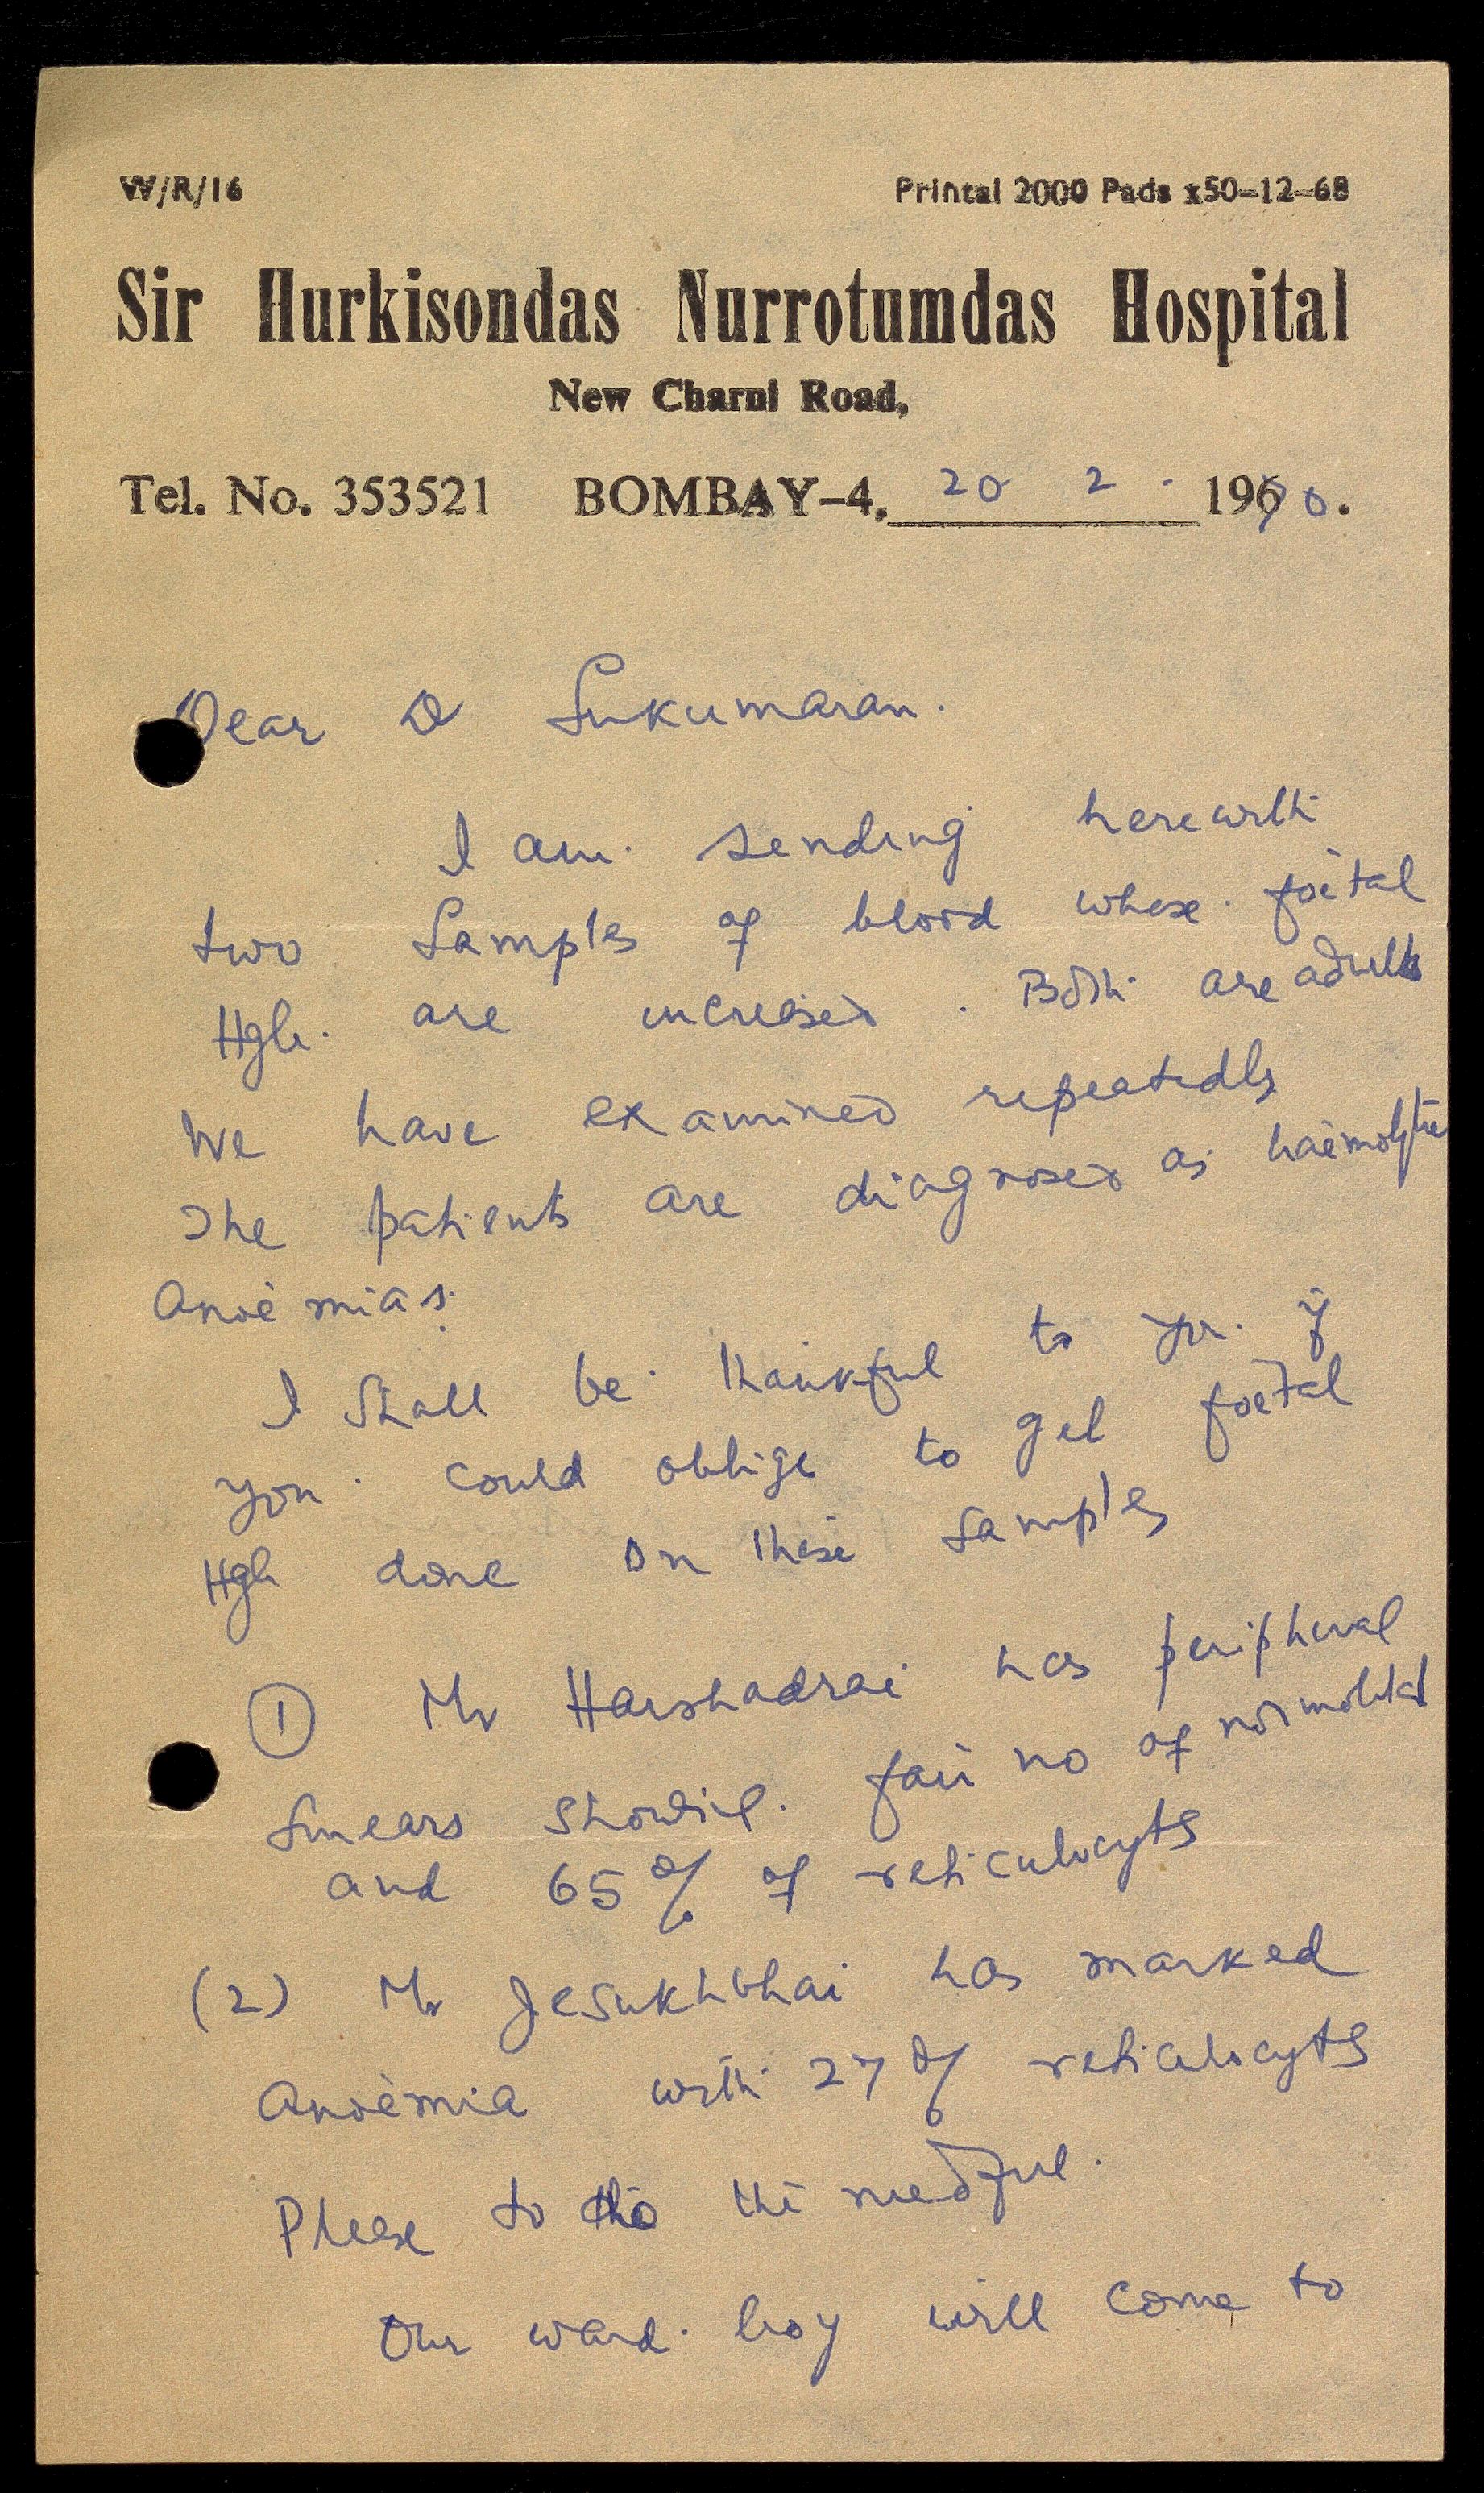 W/R/16 Printal 2000 Pads x50-12-68
Sir Hurkisondas Nurrotumdas Hospital
New Charni Road,
Tel. No. 353521 BOMBAY-4, 20 2 . 1970.
Dear Dr Sukumaran.
I am sending herewith
two samples of blood whose foetal
Hgb. are increased. Both are adults
We have examined repeatedly
The patients are diagnosed as haemolytic
Anaemias.
I shall be thankful to you if
you could oblige to get foetal
Hgb done on these samples
(1) Mr Harshadrai has peripheral
smears showing fair no of normoblast
and 65% of reticulocyts
(2) Mr Jesukhbhai has marked
Anaemia with 27% reticulocyts
Please to do the needful.
Our ward boy will come to